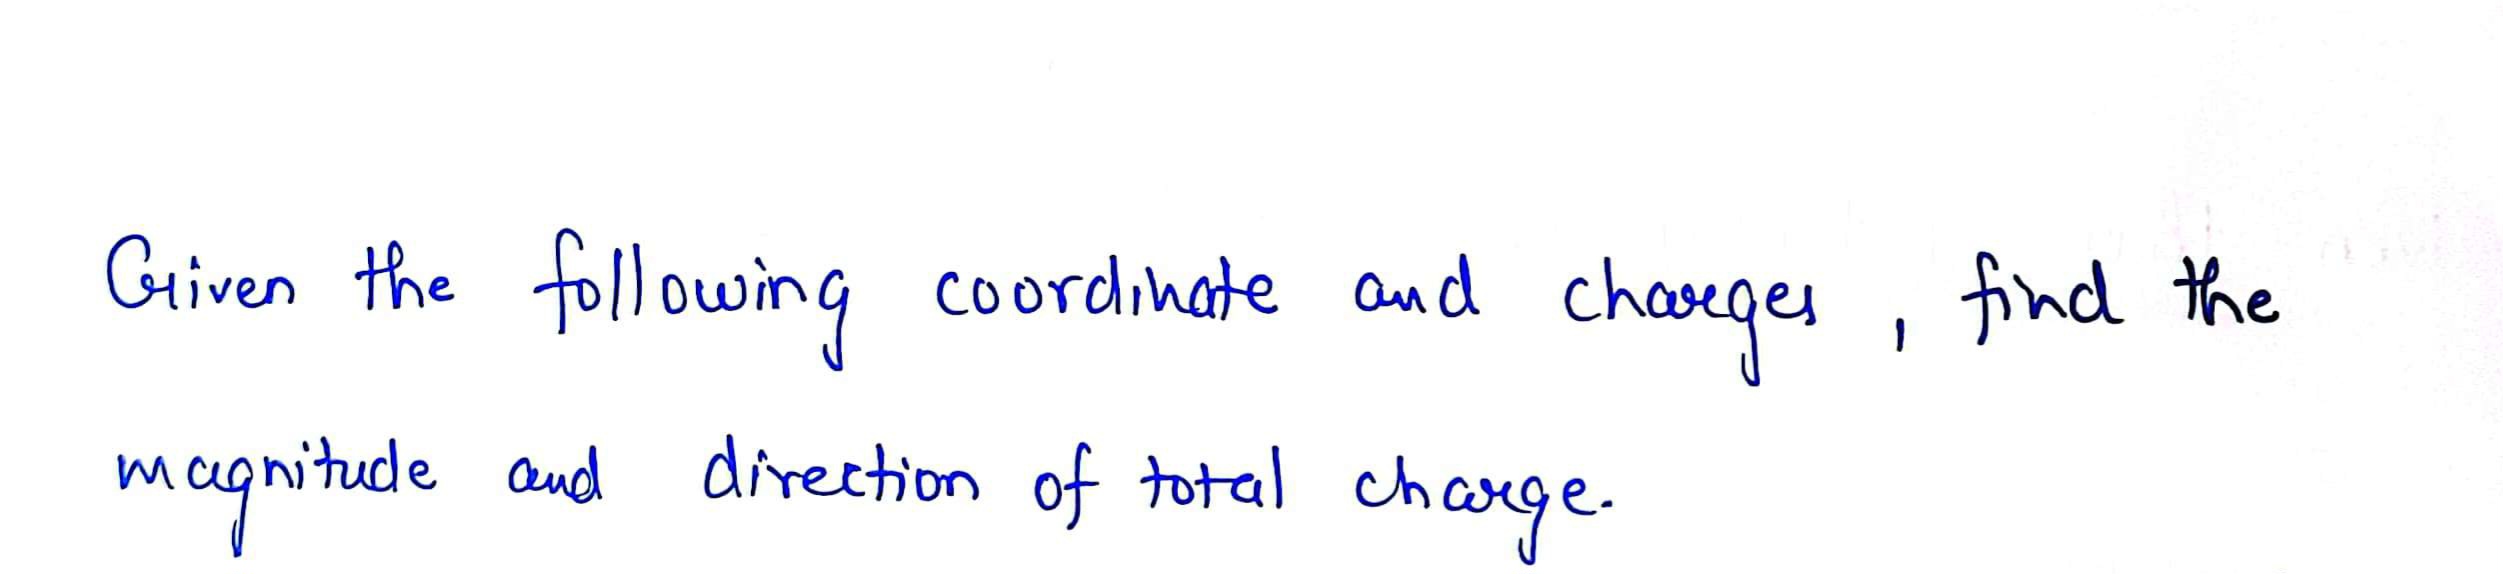 Given the following coordinate and charges, find the
magnitude and direction of total charge.